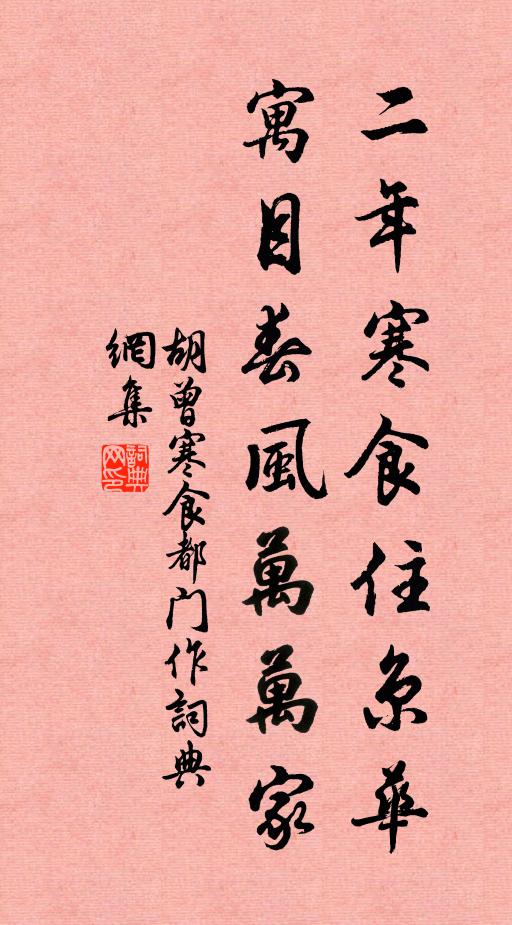 二年寒食住京華
寓目春風萬萬家
胡曾寒食都门作詞典
網集
詞典網印